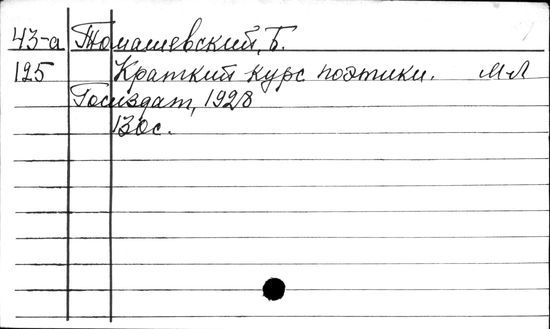 43-а Томашевский, Б.
125 Краткий курс поэтики. М-Л
Госиздат, 1928
130с.